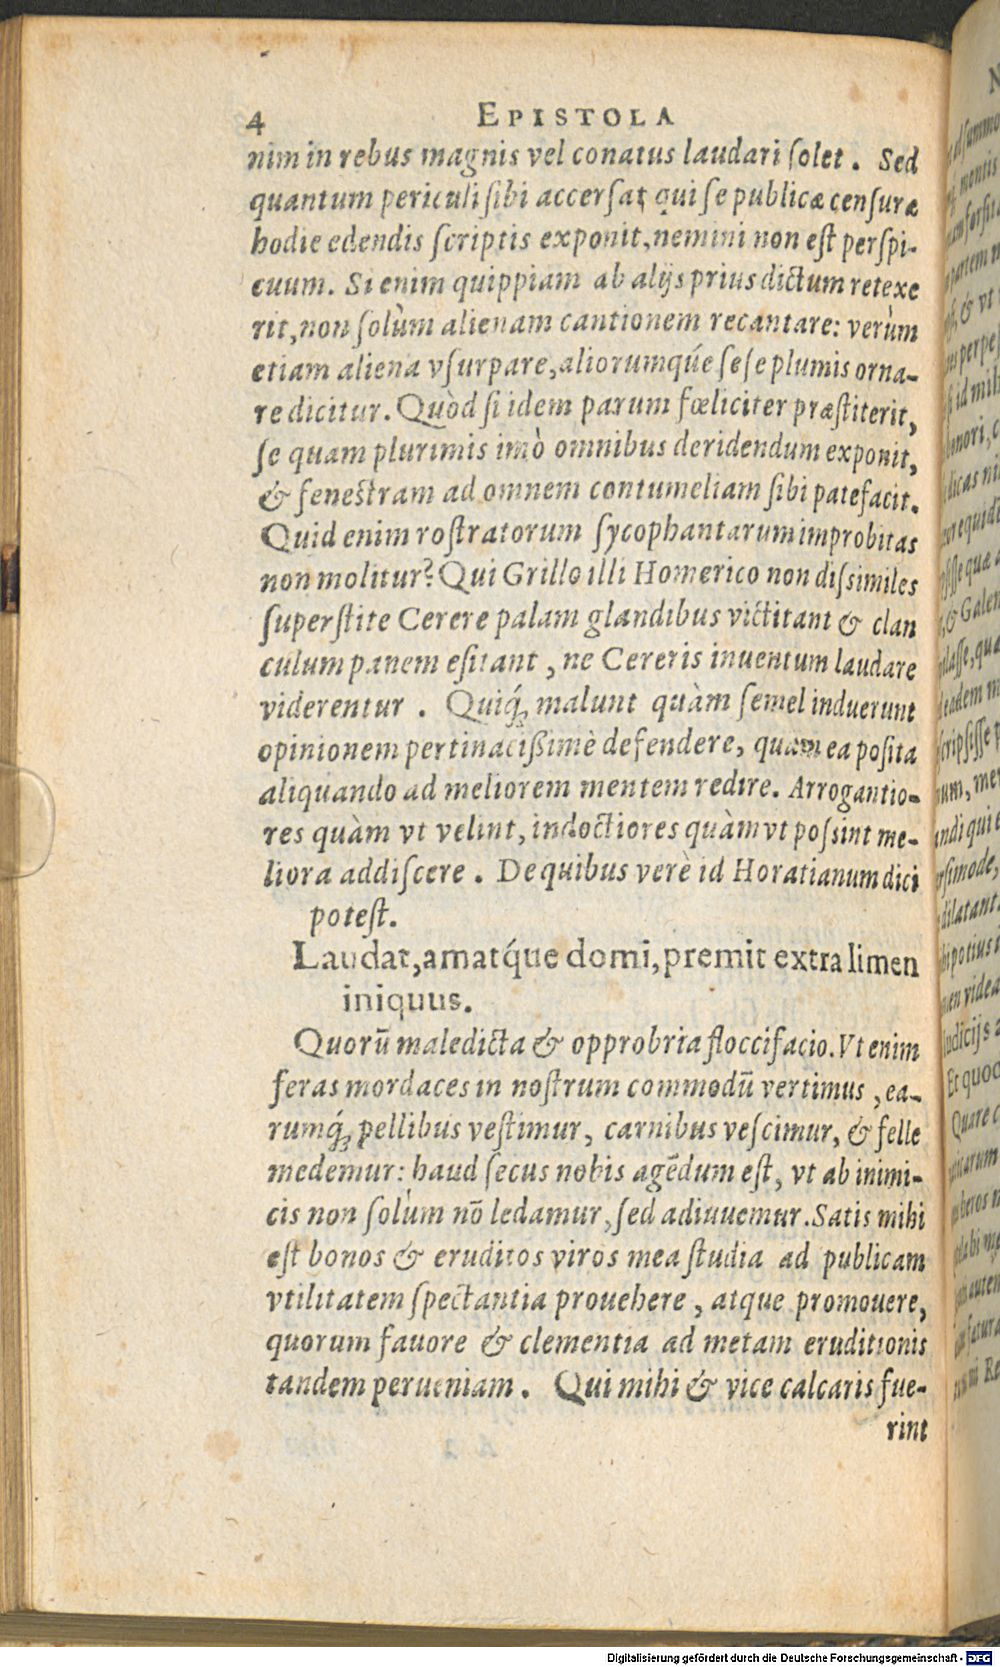 4 EPISTOLA
nim in rebus magnis vel conatus laudari ſolet. Sed
quantum periculi ſibi accerſat qui ſe publicæ cenſuræ
hodie edendis ſcriptis exponit, nemini non eſt perſpi-
cuum. Si enim quippiam ab alijs prius dictum retexe
rit, non ſolùm alienam cantionem recantare: verùm
etiam aliena vſurpare, aliorumqúe ſeſe plumis orna-
re dicitur. Quòd ſi idem parum fœliciter præſtiterit,
ſe quam plurimis imò omnibus deridendum exponit,
& feneſtram ad omnem contumeliam ſibi patefacit.
Quid enim roſtratorum ſycophantarum improbitas
non molitur? Qui Grillo illi Homerico non diſsimiles
ſuperſtite Cerere palam glandibus victitant & clan
culum panem eſitant, ne Cereris inuentum laudare
viderentur. Quiq́; malunt quàm ſemel induerunt
opinionem pertinacißimè defendere, quam ea poſita
aliquando ad meliorem mentem redire. Arrogantio-
res quàm vt velint, indoctiores quàm vt poſsint me-
liora addiſcere. De quibus verè id Horatianum dici
poteſt.
Laudat, amatq́ue domi, premit extra limen
iniquus.
Quorū maledicta & opprobria floccifacio. Vt enim
feras mordaces in noſtrum commodū vertimus, ea-
rumq́; pellibus veſtimur, carnibus veſcimur, & felle
medemur: haud ſecus nobis agēdum eſt, vt ab inimi-
cis non ſolùm nō ledamur, ſed adiuuemur. Satis mihi
eſt bonos & eruditos viros mea ſtudia ad publicam
vtilitatem ſpectantia prouehere, atque promouere,
quorum fauore & clementia ad metam eruditionis
tandem perueniam. Qui mihi & vice calcaris fue-
rint
Digitalisierung gefördert durch die Deutsche Forschungsgemeinschaft - DFG